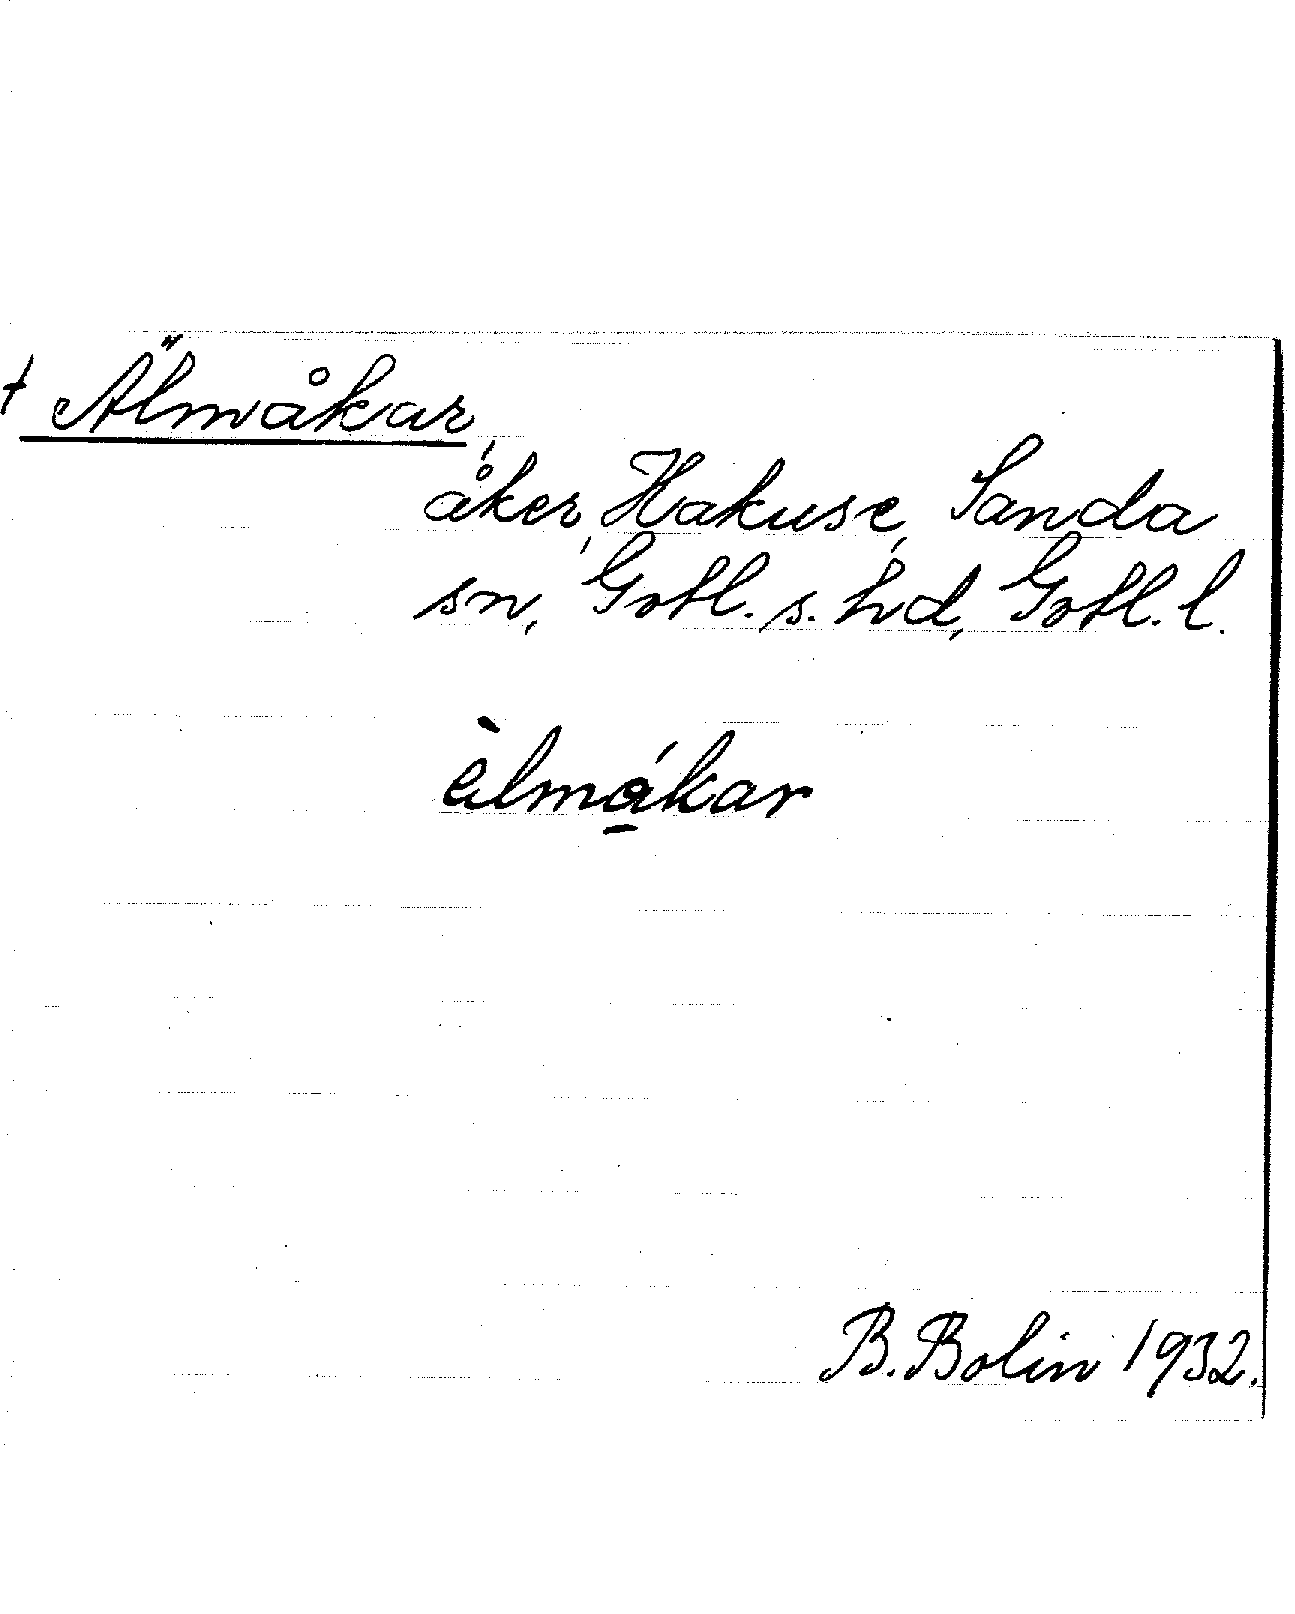 † Älmåkar,
åker, Hakuse, Sanda
sn, Gotl. s. hd, Gotl. l.
älmåkar
B. Bolin 1932.